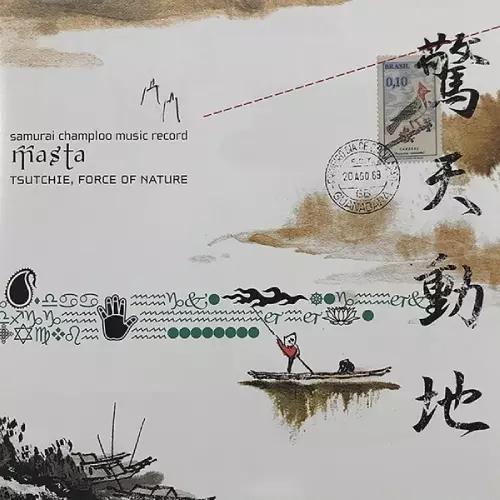 samurai champloo music record
masta
TSUTCHIE, FORCE OF NATURE
BRASIL
0,10
20 AGO 69
GB
GUANABARA
驚天動地